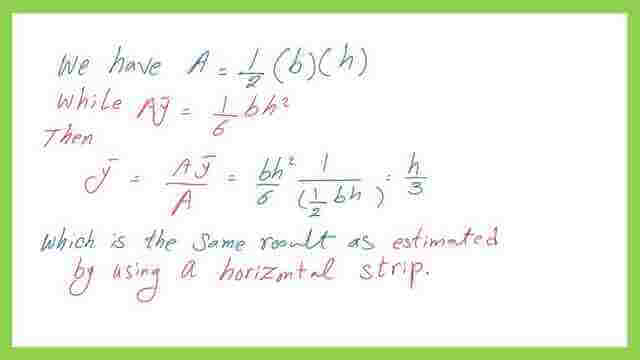 We have A = 1/2 (b)(h)
While Aȳ = 1/6 bh²
Then
ȳ = Aȳ/A = bh²/6 1/(1/2 bh) = h/3
which is the same result as estimated
by using a horizontal strip.